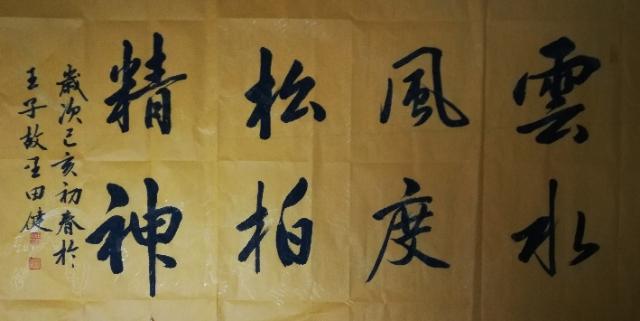 雲水
風度
松柏
精神
歲次己亥初春於
王子故里田健